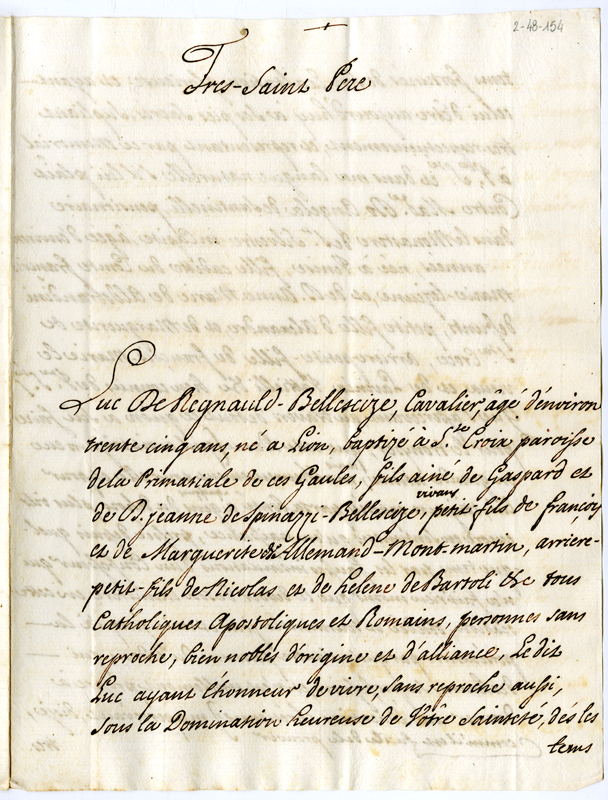 2-48-154
Tres-Saint Pere
Luc De Regnauld-Bellescize, Cavalier, âgé d'environ
trente cinq ans, né a Lion, baptizé à S.te Croix paroisse
de la Primatiale de ces Gaules, fils ainé de Gaspard et
de D. jeanne de Spinazzi-Bellescize, vivans, petit fils de françois
et de Marguerite de Allemand-Mont-martin, arriere-
petit-fils de Nicolas et de helene de Bartoli &c tous
Catholiques Apostoliques et Romains, personnes sans
reproche, bien nobles d'origine et d'alliance, Le dit
Luc ayant l'honneur de vivre, sans reproche aussi,
sous la Domination heureuse de Vôtre Sainteté, dés les
tems